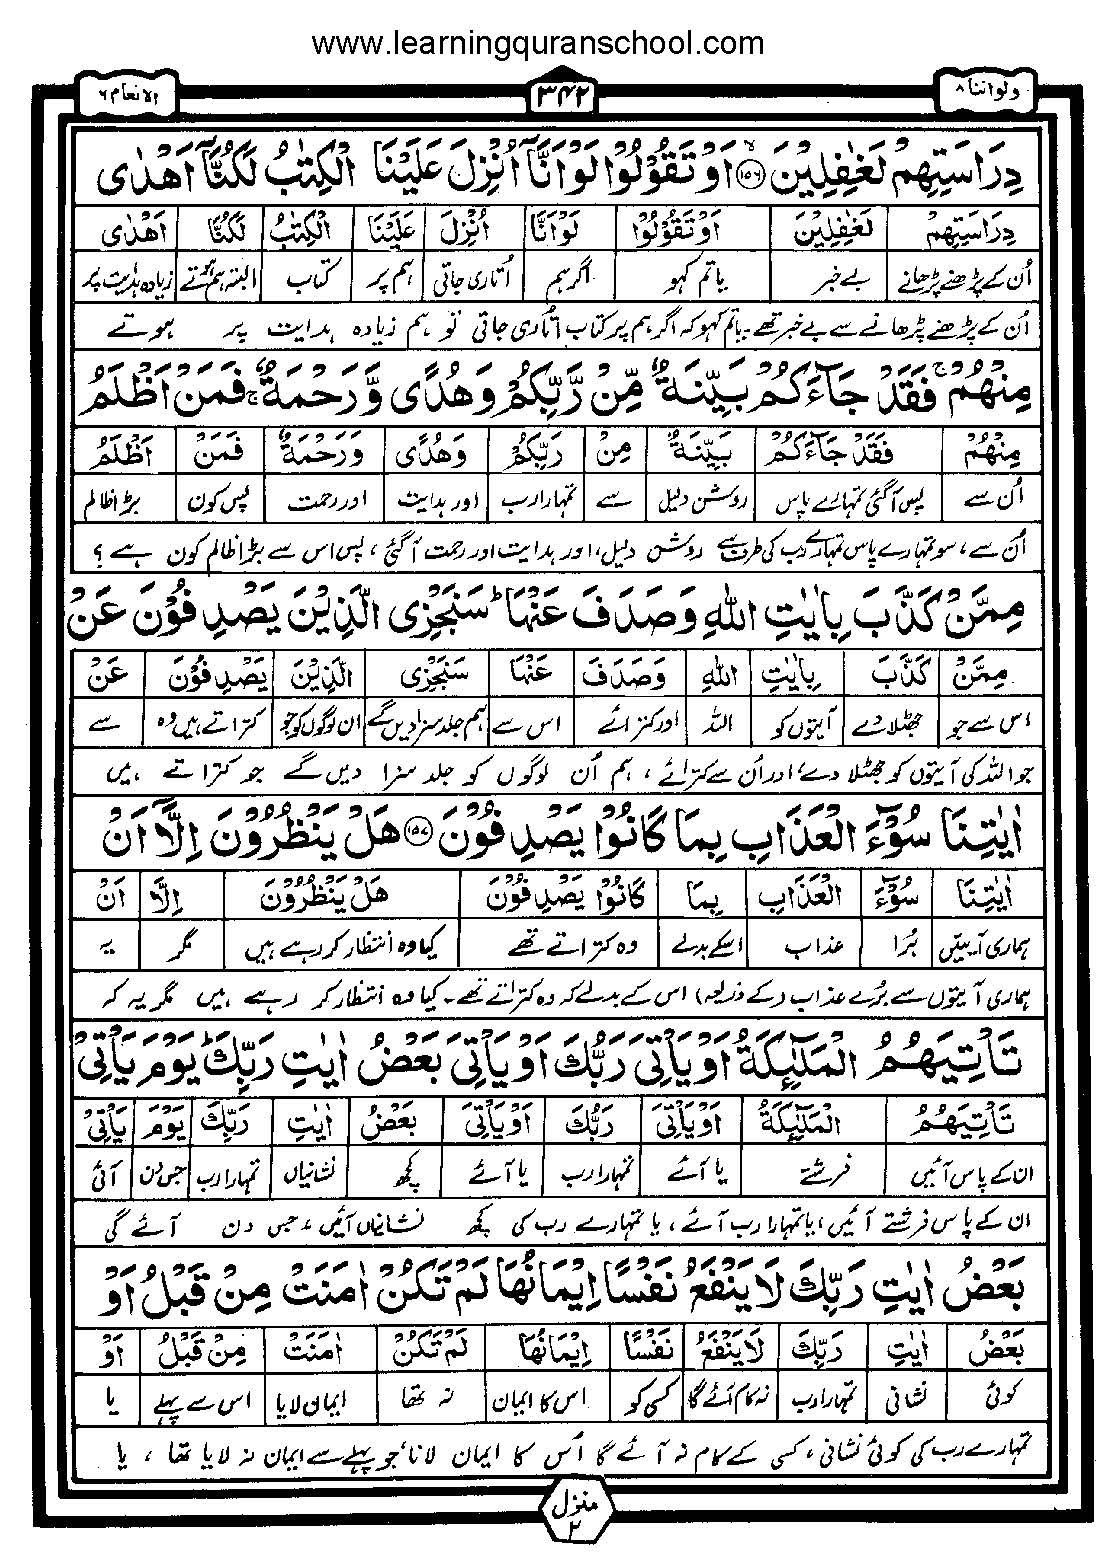 www.learningquranschool.com
ولواننا ۸
۳۴۲
الانعام ۶
دِرَاسَتِهِمْ لَغٰفِلِيْنَ ۝۱۵۶ اَوْ تَقُوْلُوْا لَوْ اَنَّآ اُنْزِلَ عَلَيْنَا الْكِتٰبُ لَكُنَّآ اَهْدٰى
دِرَاسَتِهِمْ لَغٰفِلِيْنَ اَوْ تَقُوْلُوْا لَوْ اَنَّآ اُنْزِلَ عَلَيْنَا الْكِتٰبُ لَكُنَّآ اَهْدٰى
اُن کے پڑھنے پڑھانے بے خبر یا تم کہو اگر ہم اُتاری جاتی ہم پر کتاب البتہ ہم ہوتے زیادہ ہدایت پر
اُن کے پڑھنے پڑھانے سے بے خبر تھے۔ یا تم کہو کہ اگر ہم پر کتاب اُتاری جاتی تو ہم زیادہ ہدایت پر ہوتے
مِنْهُمْ ۚ فَقَدْ جَآءَكُمْ بَيِّنَةٌ مِّنْ رَّبِّكُمْ وَهُدًى وَّرَحْمَةٌ ۚ فَمَنْ اَظْلَمُ
مِنْهُمْ فَقَدْ جَآءَكُمْ بَيِّنَةٌ مِنْ رَبِّكُمْ وَهُدًى وَرَحْمَةٌ فَمَنْ اَظْلَمُ
اُن سے پس آگئی تمہارے پاس روشن دلیل سے تمہارا رب اور ہدایت اور رحمت پس کون بڑا ظالم
اُن سے، سو تمہارے پاس تمہارے رب کی طرف سے روشن دلیل، اور ہدایت اور رحمت آگئی، پس اس سے بڑا ظالم کون ہے؟
مِمَّنْ كَذَّبَ بِاٰيٰتِ اللّٰهِ وَصَدَفَ عَنْهَا ؕ سَنَجْزِى الَّذِيْنَ يَصْدِفُوْنَ عَنْ
مِمَّنْ كَذَّبَ بِاٰيٰتِ اللّٰهِ وَصَدَفَ عَنْهَا سَنَجْزِى الَّذِيْنَ يَصْدِفُوْنَ عَنْ
اس سے جو جھٹلا دے آیتوں کو اللہ اور کترائے اس سے ہم جلد سزا دیں گے ان لوگوں کو جو کتراتے ہیں وہ سے
جو اللہ کی آیتوں کو جھٹلا دے، اور اُن سے کترائے، ہم اُن لوگوں کو جلد سزا دیں گے جو کتراتے ہیں
اٰيٰتِنَا سُوْٓءَ الْعَذَابِ بِمَا كَانُوْا يَصْدِفُوْنَ ۝۱۵۷ هَلْ يَنْظُرُوْنَ اِلَّآ اَنْ
اٰيٰتِنَا سُوْٓءَ الْعَذَابِ بِمَا كَانُوْا يَصْدِفُوْنَ هَلْ يَنْظُرُوْنَ اِلَّا اَنْ
ہماری آیتیں بُرا عذاب اسکے بدلے وہ کتراتے تھے کیا وہ انتظار کر رہے ہیں مگر یہ
ہماری آیتوں سے بُرے عذاب (کے ذریعہ) اس کے بدلے کہ وہ کتراتے تھے۔ کیا وہ انتظار کر رہے ہیں مگر یہ کہ
تَاْتِيَهُمُ الْمَلٰٓئِكَةُ اَوْ يَاْتِىَ رَبُّكَ اَوْ يَاْتِىَ بَعْضُ اٰيٰتِ رَبِّكَ ؕ يَوْمَ يَاْتِىْ
تَاْتِيَهُمُ الْمَلٰٓئِكَةُ اَوْ يَاْتِىَ رَبُّكَ اَوْ يَاْتِىَ بَعْضُ اٰيٰتِ رَبِّكَ يَوْمَ يَاْتِىْ
ان کے پاس آئیں فرشتے یا آئے تمہارا رب یا آئے کچھ نشانیاں تمہارا رب جس دن آئی
ان کے پاس فرشتے آئیں، یا تمہارا رب آئے، یا تمہارے رب کی کچھ نشانیاں آئیں، جس دن آئے گی
بَعْضُ اٰيٰتِ رَبِّكَ لَا يَنْفَعُ نَفْسًا اِيْمَانُهَا لَمْ تَكُنْ اٰمَنَتْ مِنْ قَبْلُ اَوْ
بَعْضُ اٰيٰتِ رَبِّكَ لَا يَنْفَعُ نَفْسًا اِيْمَانُهَا لَمْ تَكُنْ اٰمَنَتْ مِنْ قَبْلُ اَوْ
کوئی نشانی تمہارا رب نہ کام آئے گا کسی کو اس کا ایمان نہ تھا ایمان لایا اس سے پہلے یا
تمہارے رب کی کوئی نشانی، کسی کے کام نہ آئے گا اُس کا ایمان لانا جو پہلے سے ایمان نہ لایا تھا، یا
منزل ۲